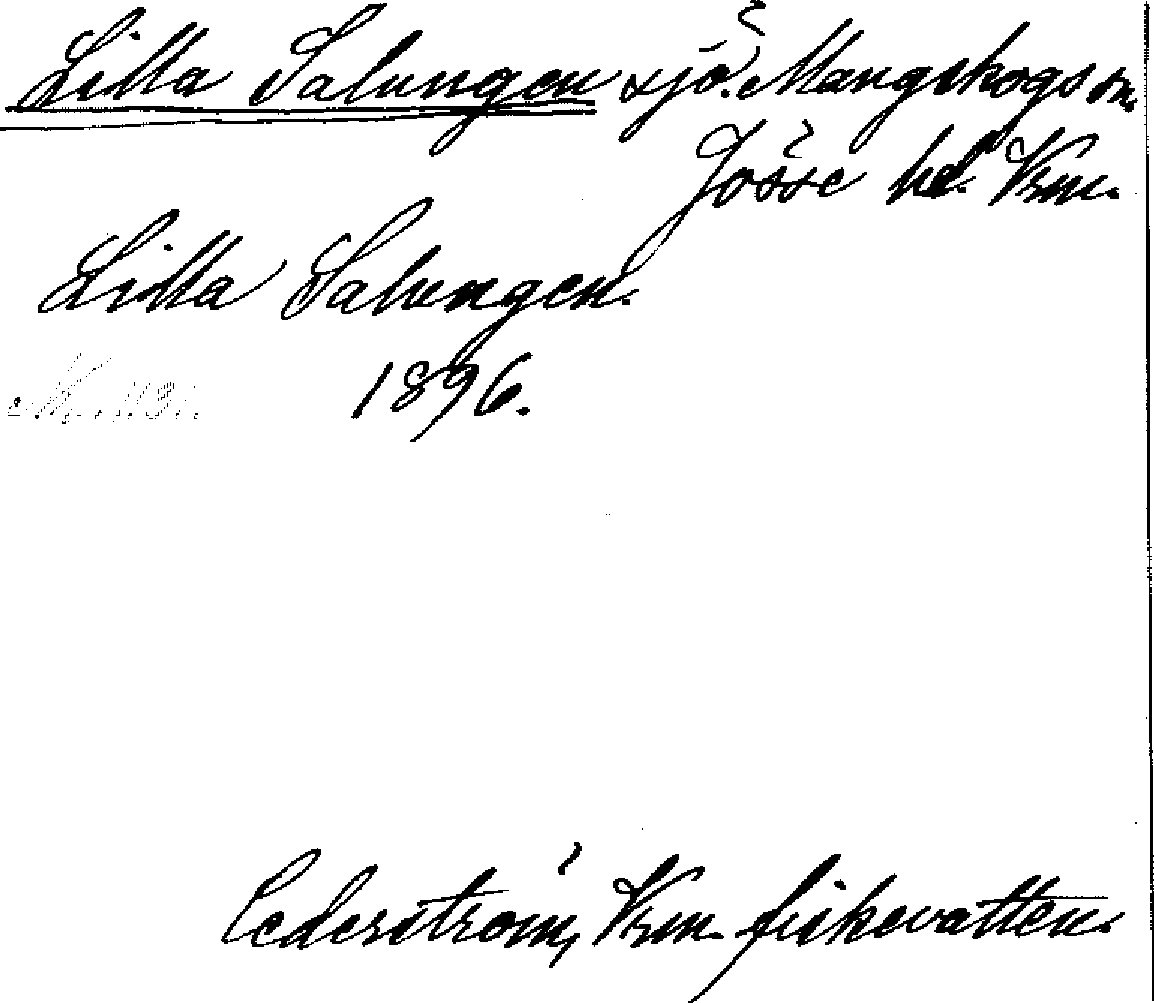 Lilla Salungen sjö. Mangskogs sn.
Jösse hd. Vrm.
Lilla Salungen.
1896.
Cederström, Vrm. fiskevatten.